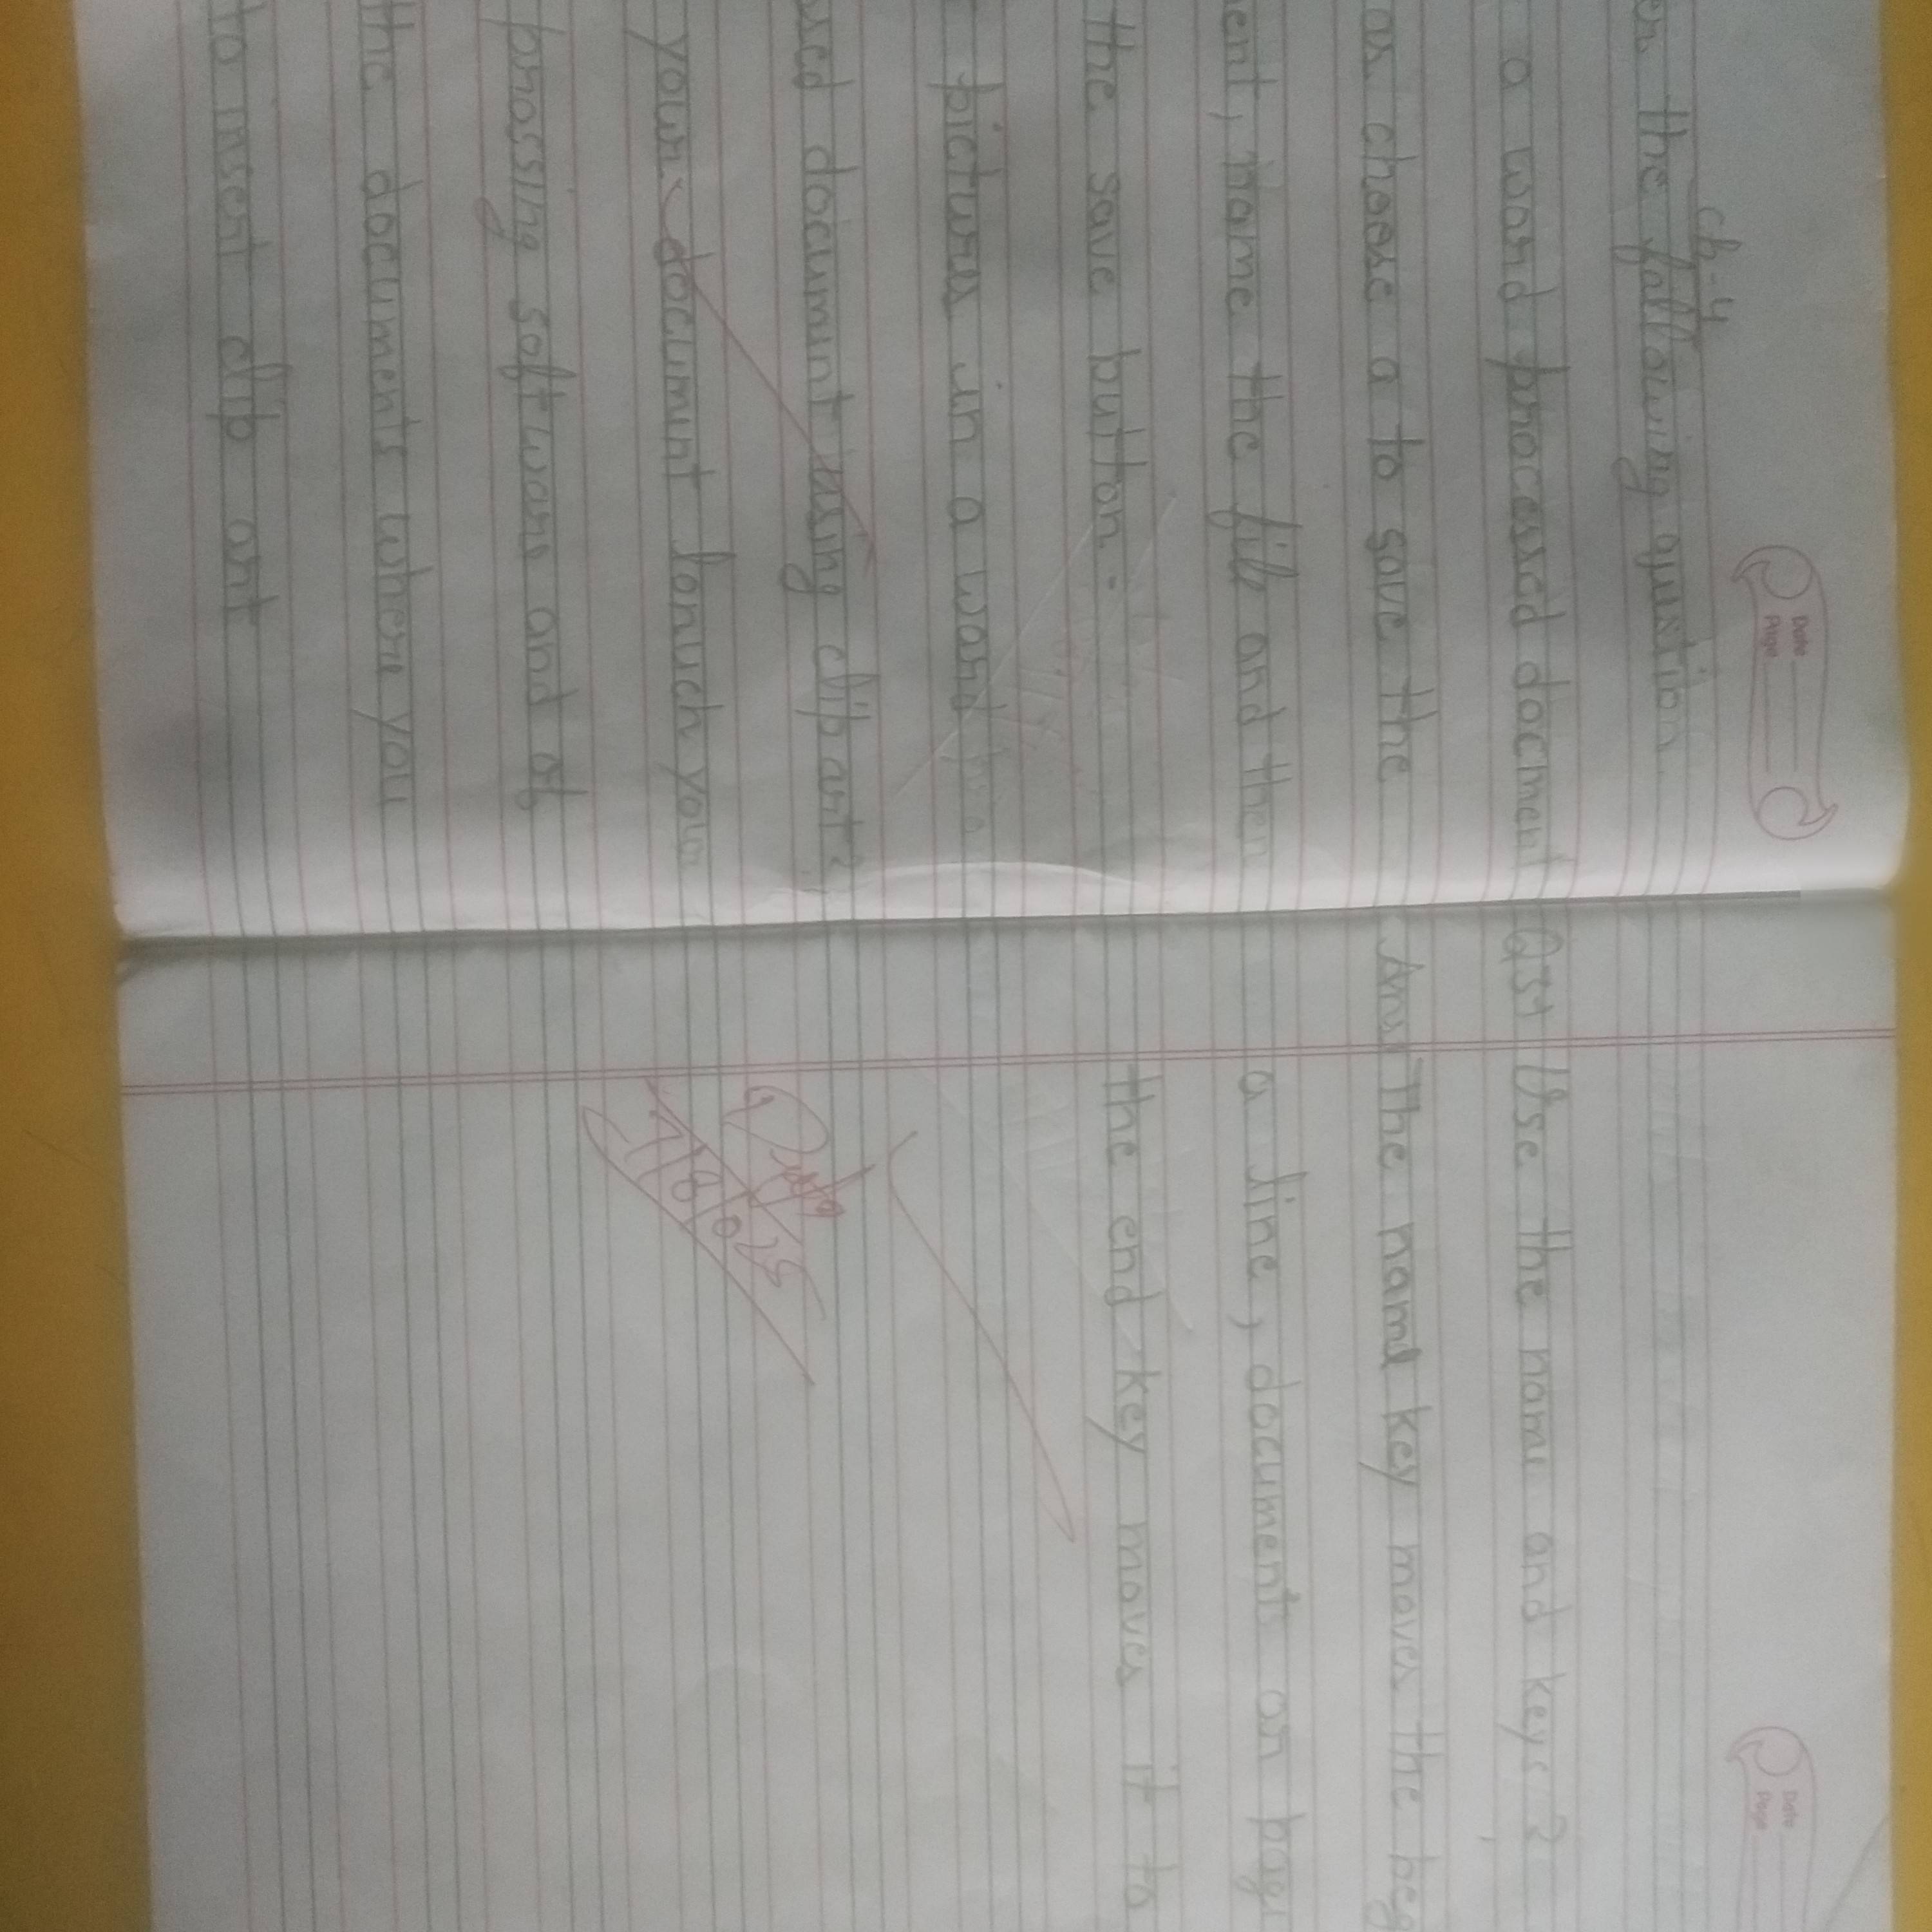 Ch-4
Date
Page
the following qustion
a word processed document
as choose a to save the
ent, name the file and then
the save button.
pictures in a word
document using clip art?
your documnt lonuch your
prossing software and of
the documents where you
to insert clip art
Date
Page
Q3+ Use the name and keys?
Ans The name key moves the beg
a line, documents or page
the end key moves it to